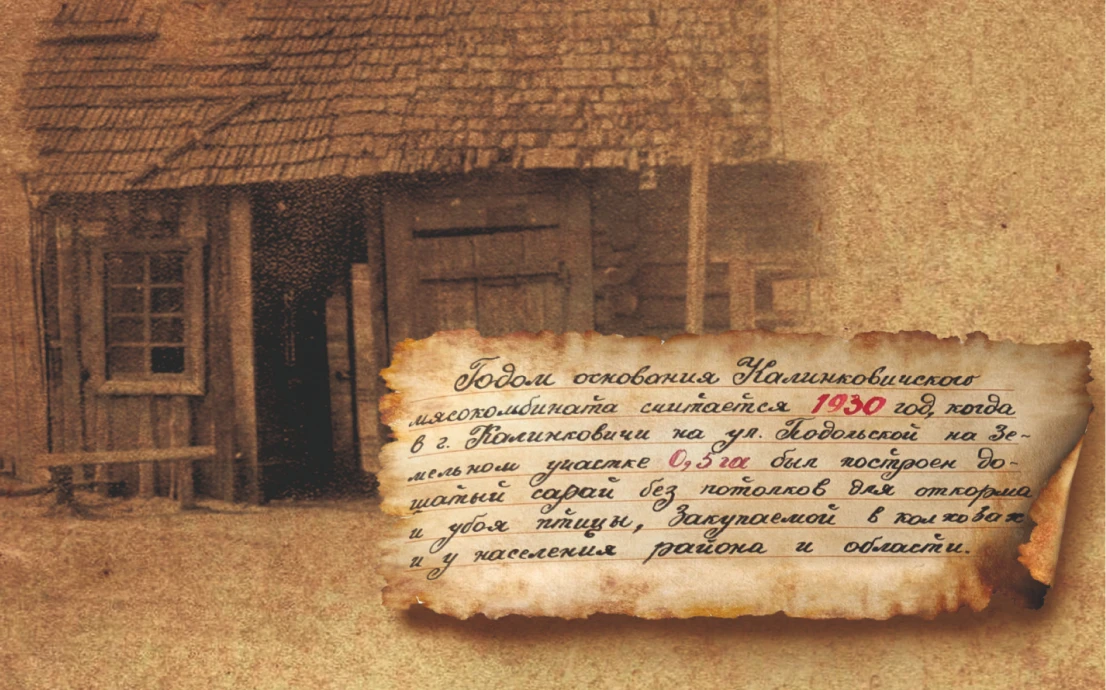 Годом основания Калинковичского
мясокомбината считается 1930 год, когда
в г. Калинковичи на ул. Подольской на зе-
мельном участке 0,5 га был построен до-
щатый сарай без потолков для откорма
и убоя птицы, закупаемой в колхозах
и у населения района и области.